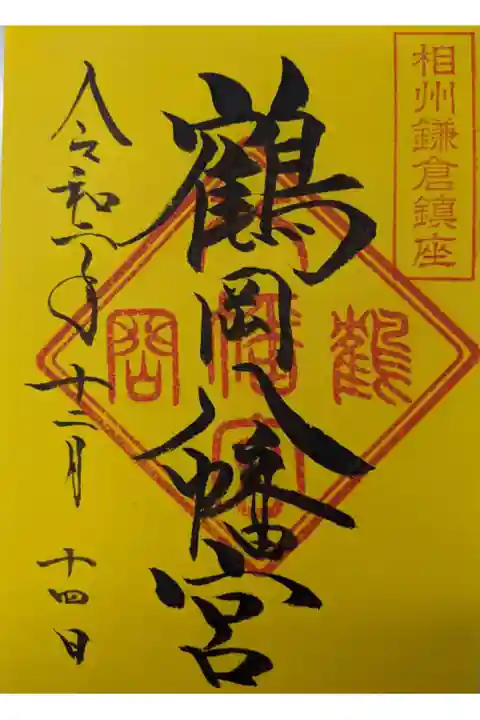 相州鎌倉鎮座
鶴岡八幡宮
鶴岡
八幡宮
令和六年十二月十四日